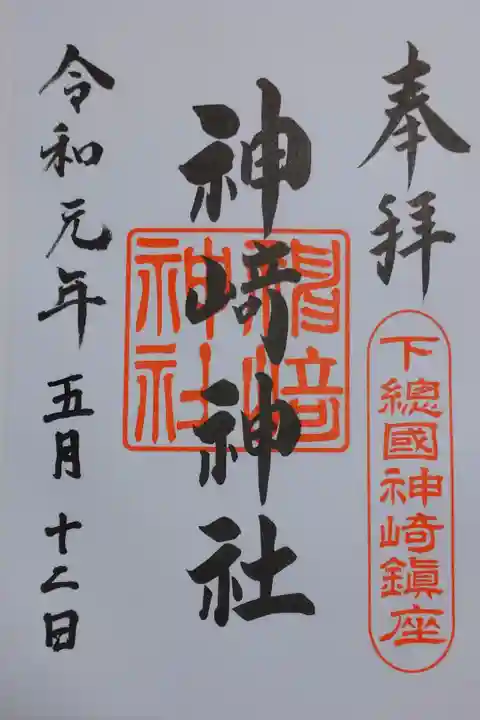 奉拝
下總國神崎鎮座
神崎神社
神崎神社
令和元年五月十二日